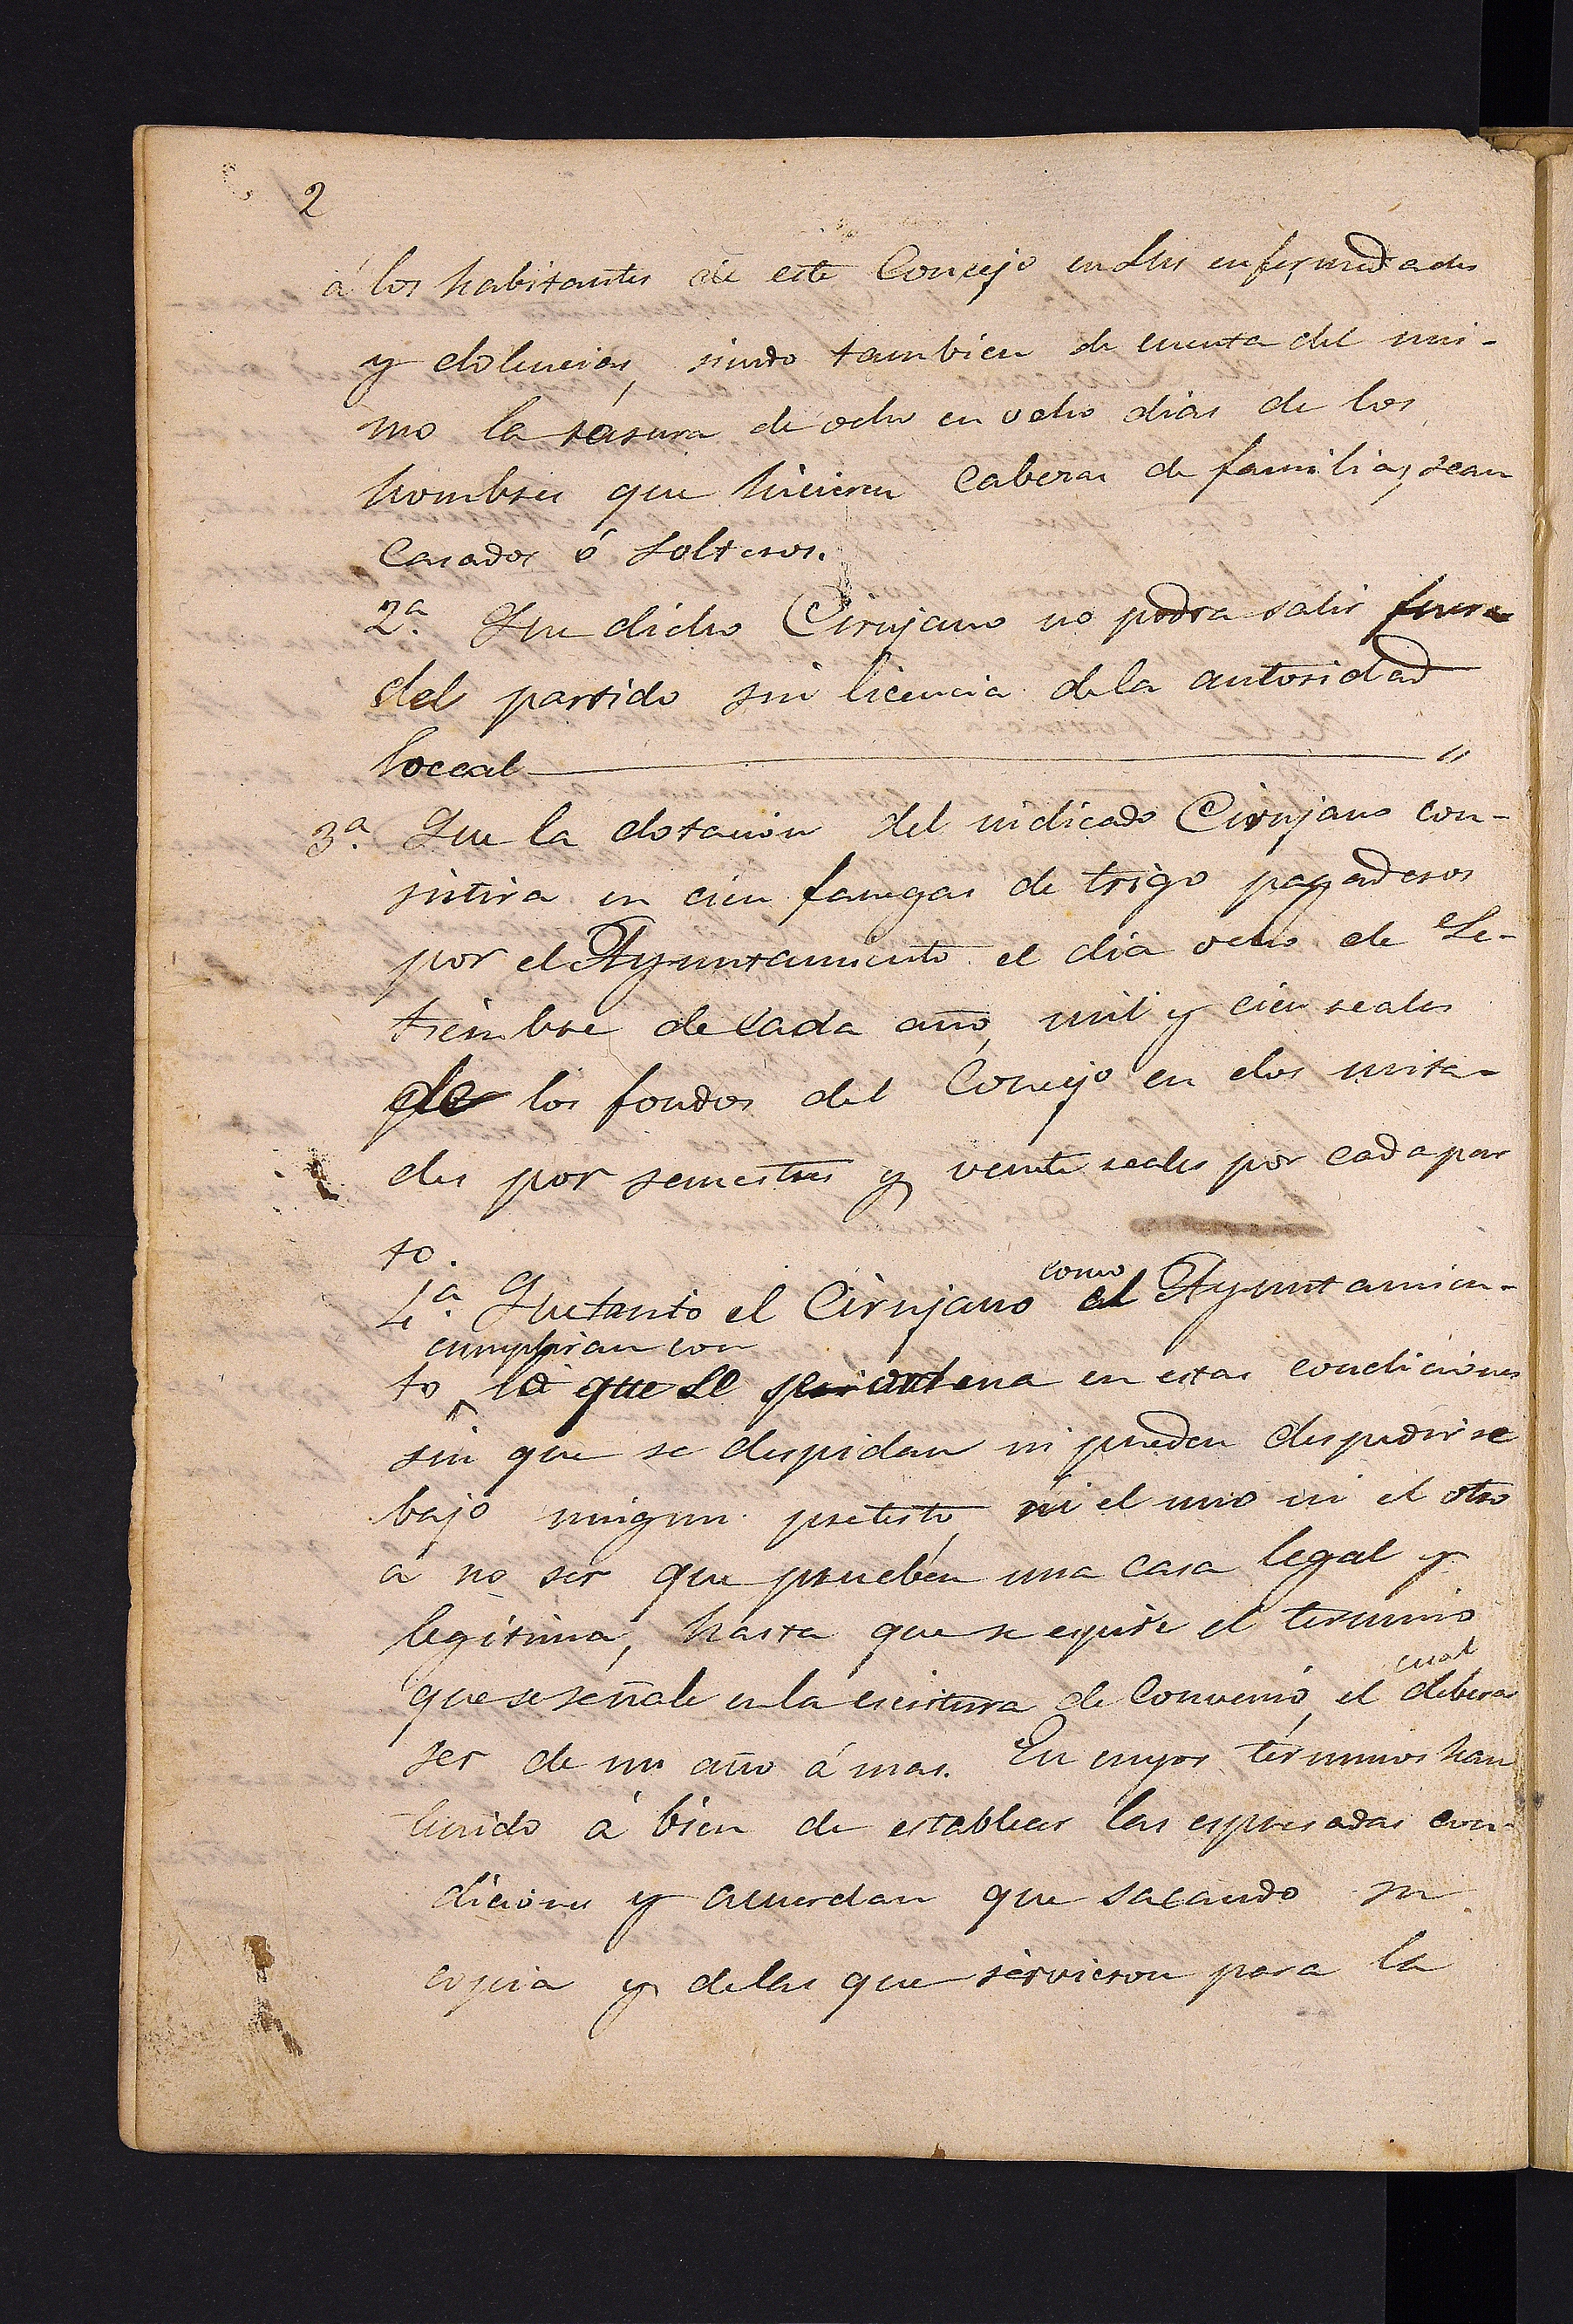 2
á los habitantes de este Concejo en sus enfermedades
y dolencias, siendo tambien de cuenta del mis-
mo la rasura de ocho en ocho dias de los
hombres que hicieren cabezas de familia, sean
casados ó solteros.
2.ª Que dicho Cirujano no podra salir fuera
del partido sin licencia de la autoridad
loccal "
3.ª Que la dotacion del indicado Cirujano con-
sistira en cien fanegas de trigo pagaderos
por el Ayuntamiento el dia ocho de Se-
tiembre de cada año, mil y cien reales
de los fondos del Concejo en dos mita-
des por semestres y veinte reales por cada par
to.
4.ª Que tanto el Cirujano como el Ayuntamien-
to cumpliran con lo que se contiena en estas condiciones
sin que se despidan ni pueden despedirse
bajo ningun pretesto, ni el uno ni el otro
á no ser que prueben una casa legal y
legitima, hasta que se espire el termino
que se señale en la escritura de convenio, el cual debera
ser de un año á mas. En cuyos términos han
tenido á bien de establecer las espresadas con-
diciones y acuerdan que sacando su
copia y de las que servieron para la